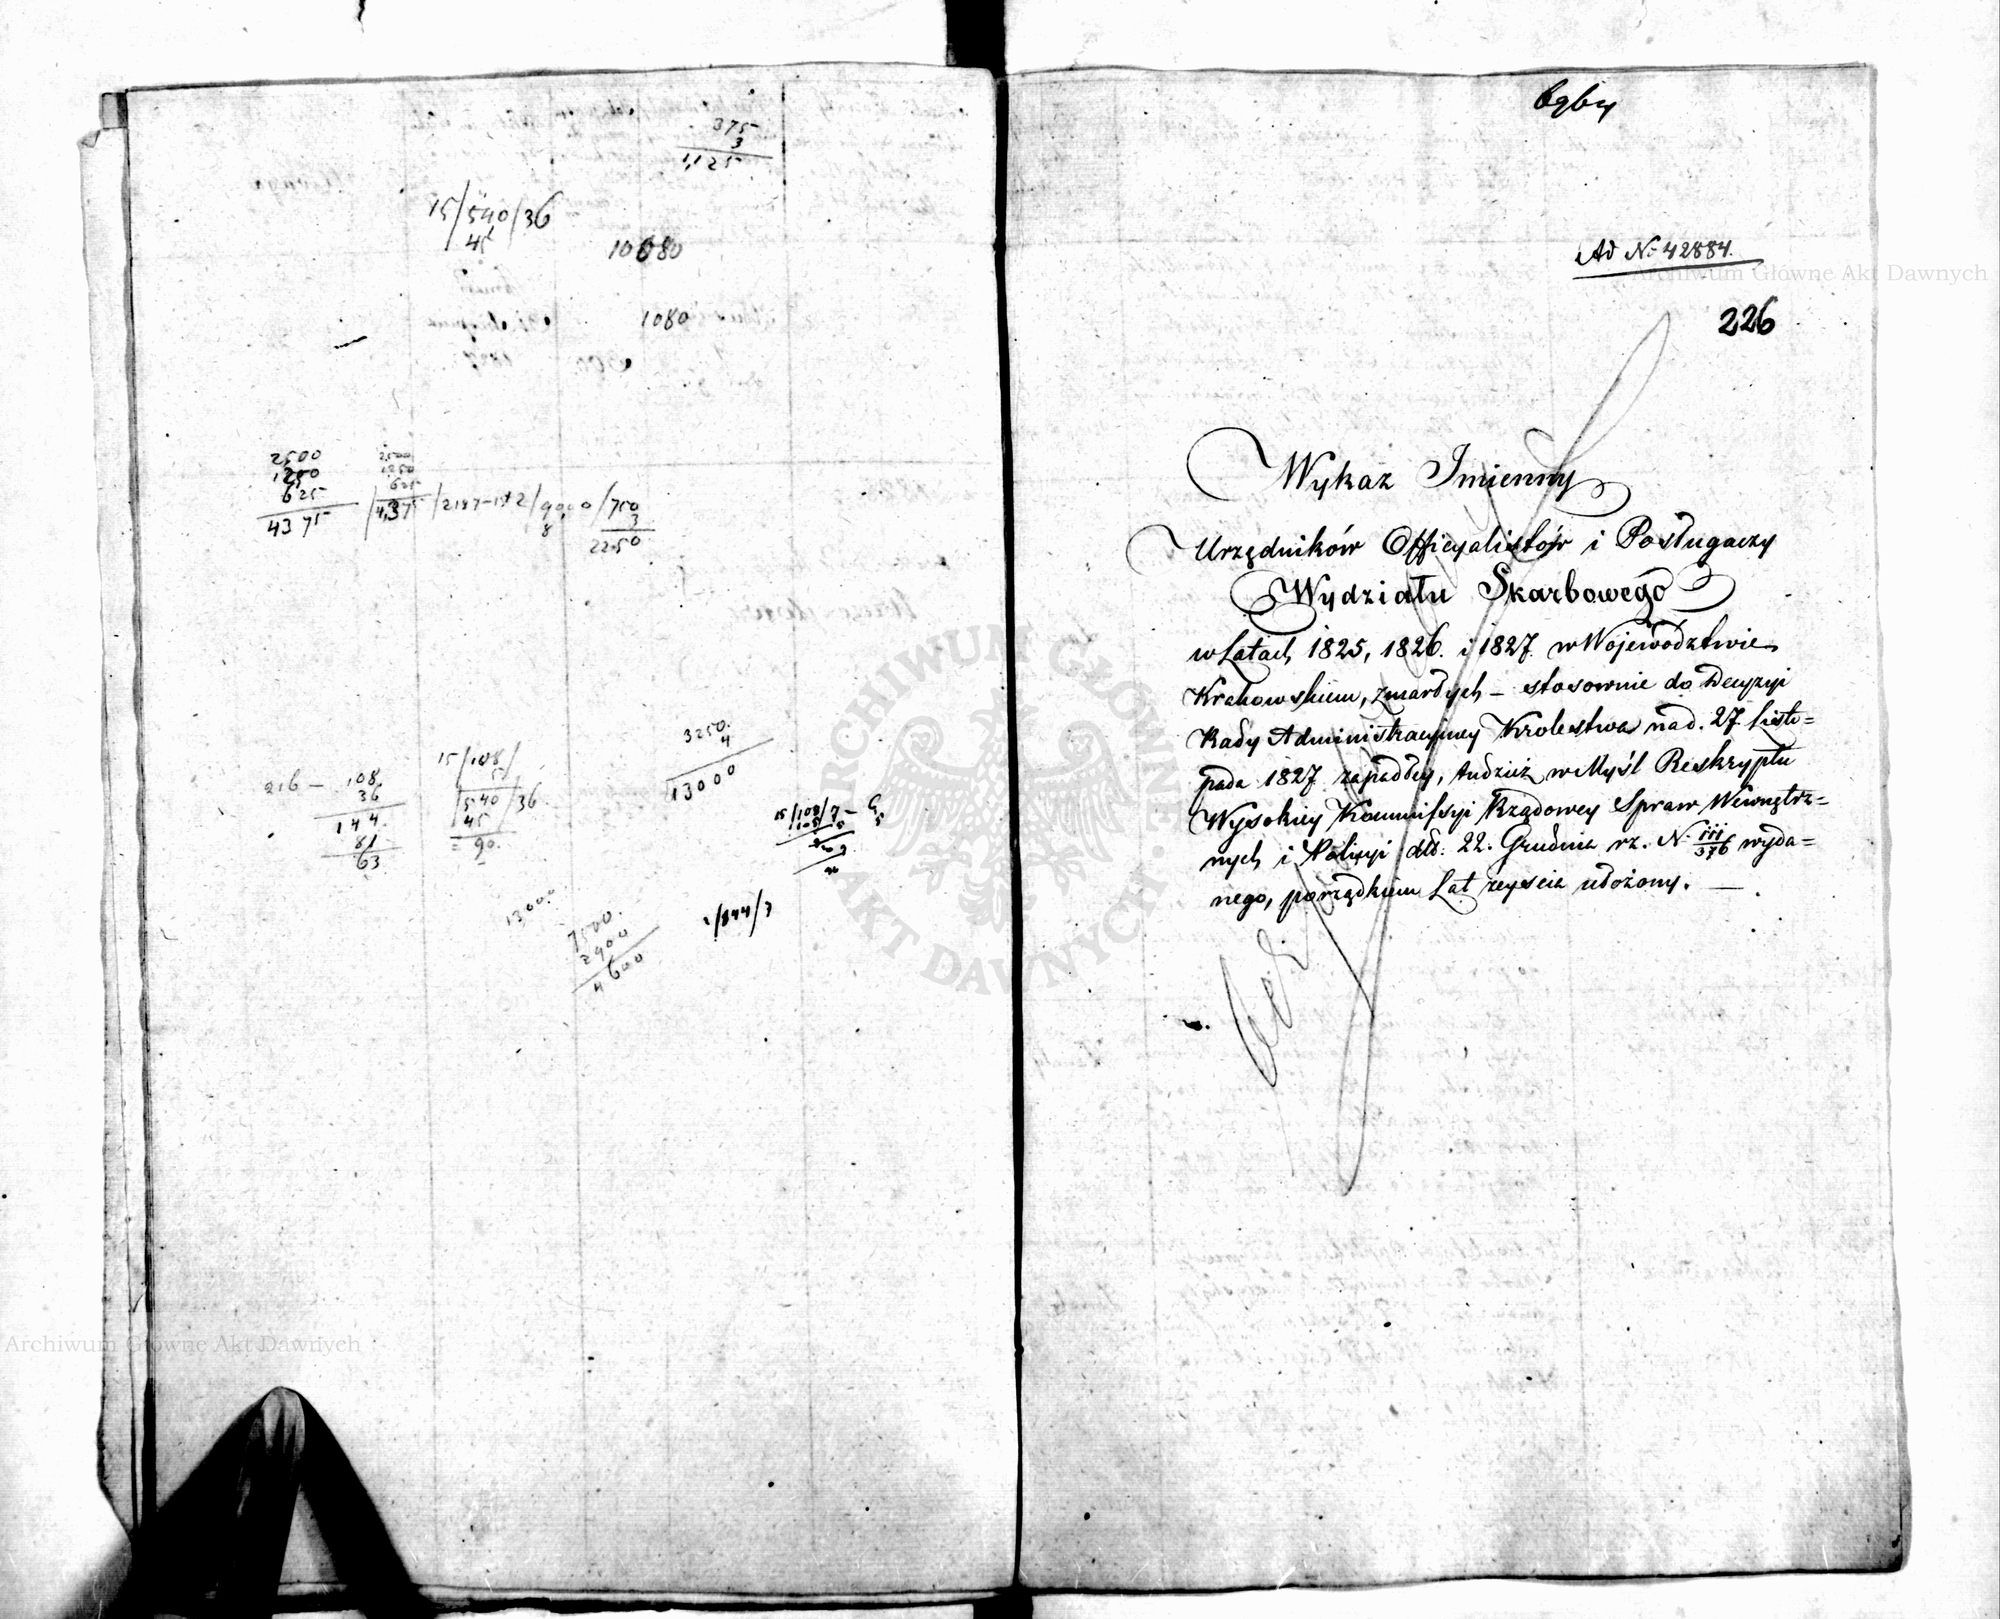 375
3
1,125
15/540/36
45
10680
1080
2500
1250
625
4375
2500
1250
625
4375
/2187-
2/9000/750
8
3
2250
3250
4
13000
216 — 108
36
144
81
63
15/108/
5
540/36
45
90
15/108/7-
105
1300
7500
2900
4600
/844/
Ad No 42884.
226
Wykaz Imienny
Urzędników Officyalistów i Posługaczy
Wydziału Skarbowego
w Latach 1825, 1826. i 1827. w Województwie
Krakowskiem, zmarłych – stosownie do Decyzyi
Rady Administracyiney Krolestwa nad. 27. Listo=
pada 1827 zapadłey, tudzież w Myśl Reskryptu
Wysokiey Kommissyi Rządowey Spraw Wewnętrz=
nych i Policyi dtto. 22. Grudnia rz. No 376 wyda=
nego, porządkiem Lat zeyscia ułożony. —
Archiwum Główne Akt Dawnych
Archiwum Główne Akt Dawnych
ARCHIWUM GŁÓWNE AKT DAWNYCH